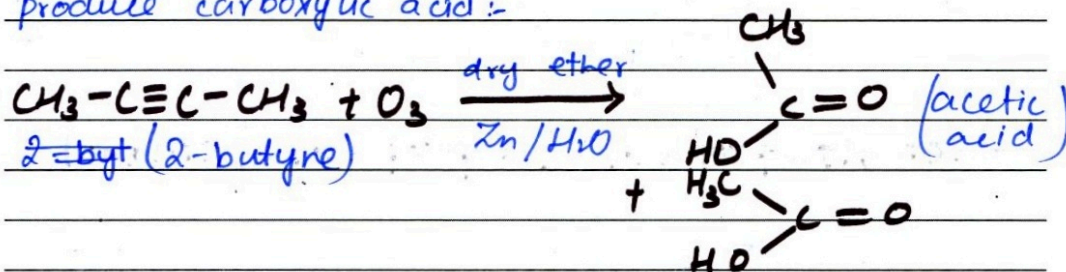 produce carboxylic acid :-
CH₃-C≡C-CH₃ + O₃ dry ether Zn/H₂O CH₃ C=O HO (acetic acid)
(2-butyne)
+ H₃C C=O HO